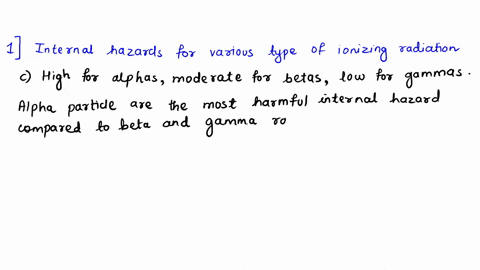 1] Internal hazards for various type of ionizing radiation
c) High for alphas, moderate for betas, low for gammas.
Alpha particle are the most harmful internal hazard
compared to beta and gamma ra